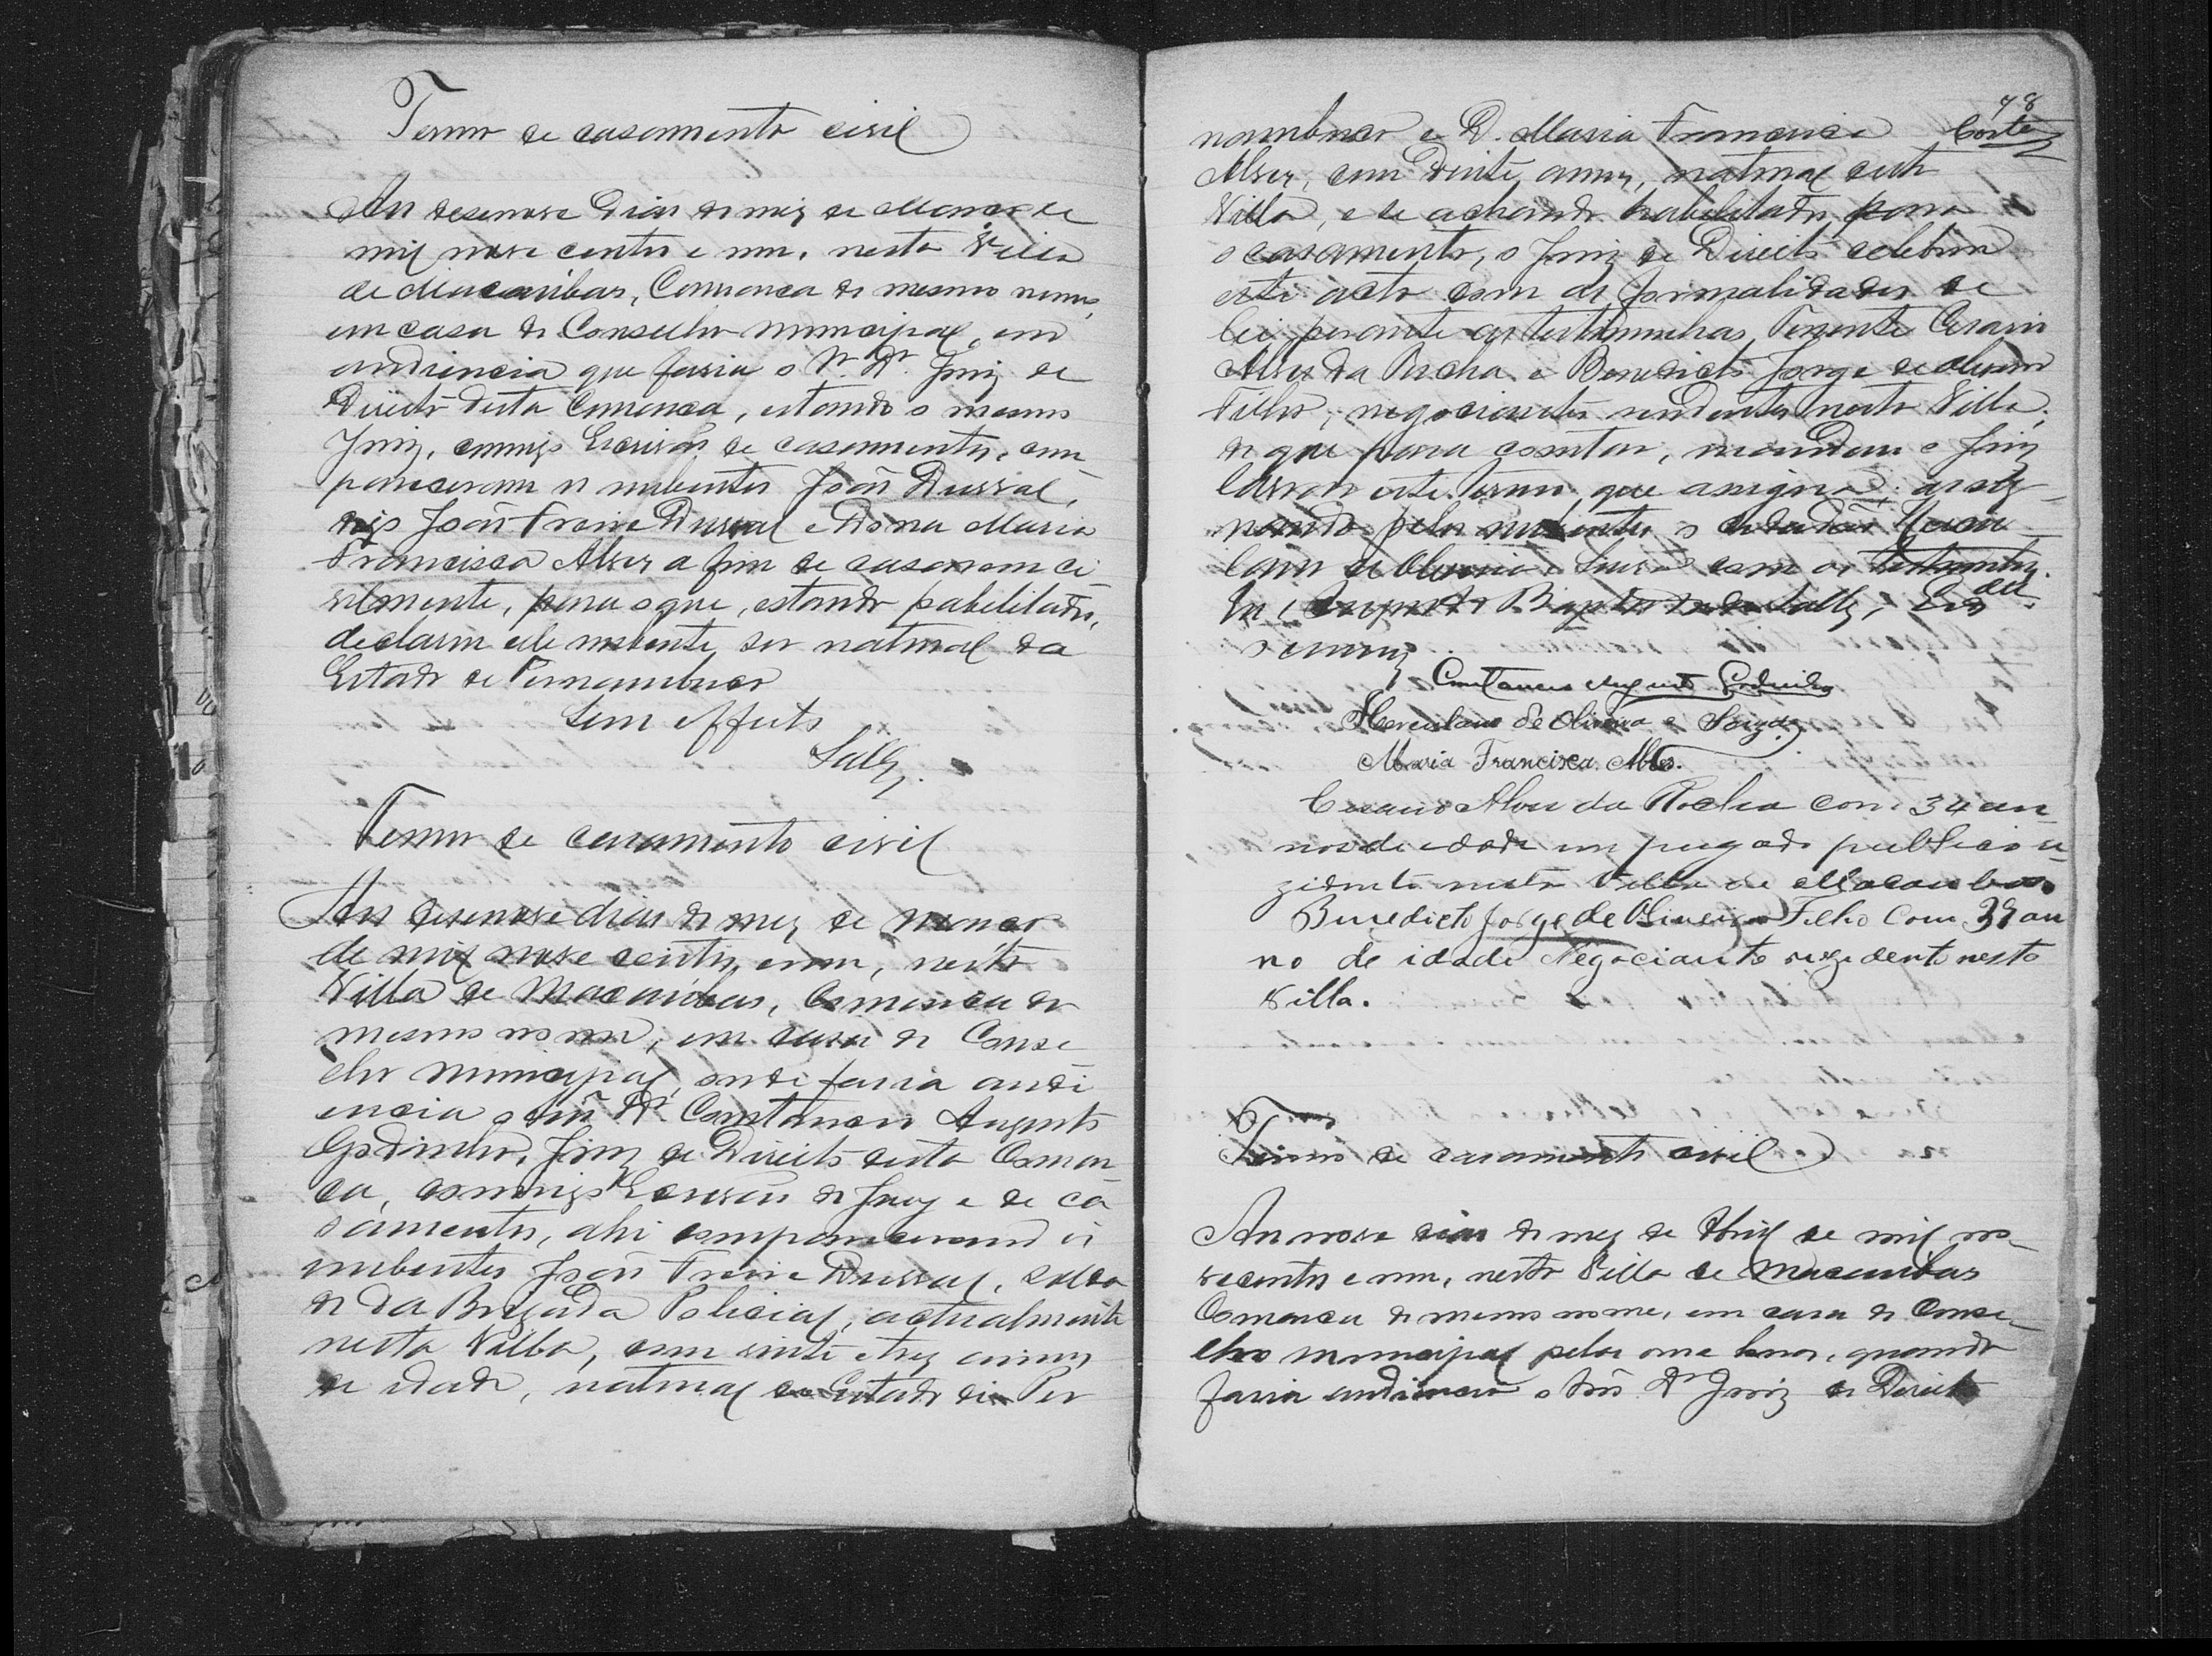 Termo de casamento civil
Aos desenove dias do mez de Março de
mil nove centos e um, nesta Villa
de Macaúbas, Comarca do mesmo nome,
em casa do Conselho municipal, em
audiencia que fasia o Sr. Dr. Juiz de
Direito desta Comarca, estando o mesmo
Juiz, commigo Escrivão de casamentos, com
pareceram os nubentes João Durval,
digo João Freire Durval e Dona Maria
Francisca Alves a fim de casarem ci
vilmente, para o que, estando habilitados,
declarou elle nubente ser natural da
Estado de Pernambuco
Sem effeito
Salles
Termo de casamento civil
Aos desenove dias do mez de Março
de mil nove centos e um, nesta
Villa de Macaúbas, Comarca do
mesmo nome, em casa do Conse
lho municipal, onde fasia audi
encia o Snr. Dr. Constancio Augusto
Godinho, Juiz de Direito desta Comar
ca, commigo Escrivão do Jury e de ca
samentos, ahi compareceram os
nubentes João Freire Durval, solda
do da Brigada Policial, actualmente
nesta Villa, com vinte e tres annos
de idade, natural do Estado de Per
78
nambuco e D. Maria Francisca Côrte
Alves, com vinte annos, natural desta
Villa, e se achando habilitados para
o casamento, o Juiz de Direito celebrou
este acto com as formalidades de
lei perante as testemunhas, Tenente Cesario
Alves da Rocha e Benedicto Jorge de Oliveira
Filho, negociantes residentes nesta Villa;
do que para constar, mandou o Juiz
lavrar este termo, que assigna,
nando pelo nubente, o cidadão Hercu
lano de Oliveira e Souza com as testemunhas.
Eu, Augusto Baptista de Salles, Es
crivão
Constancio Augusto Godinho
Herculano de Oliveira e Souza
Maria Francisca Alves.
Cesario Alves da Rocha com 34 an
nos de edade empregado publico re
zidente nesta Villa de Macaubas
Benedicto Jorge de Oliveira Filho Com 39 an
no de idade Negociante rezedente nesta
Villa.
Termo de casamento civil
Ao nove dias do mez de Abril de mil no
vecentos e um, nesta Villa de Macaubas
Comarca do mesmo nome, em casa do Conse
lho municipal pelas onze horas, quando
fasia audiencia o Snr. Dr. Juiz de Direito